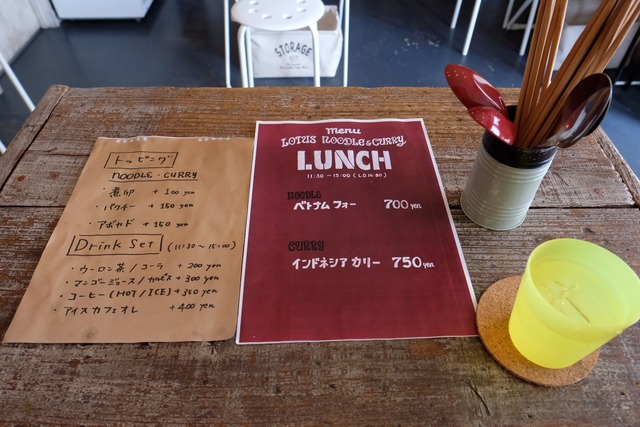 STORAGE
トッピング
NOODLE・CURRY
・煮卵 + 100 yen
・パクチー + 150 yen
・アボカド + 150 yen
Drink Set (11:30〜15:00)
・ウーロン茶/コーラ + 200 yen
・マンゴージュース/カルピス + 300 yen
・コーヒー(HOT/ICE) + 350 yen
・アイスカフェオレ + 400 yen
menu
LOTUS NOODLE & CURRY
LUNCH
11:30〜15:00 (L.O 14:30)
NOODLE
ベトナム フォー 700 yen
CURRY
インドネシア カリー 750 yen